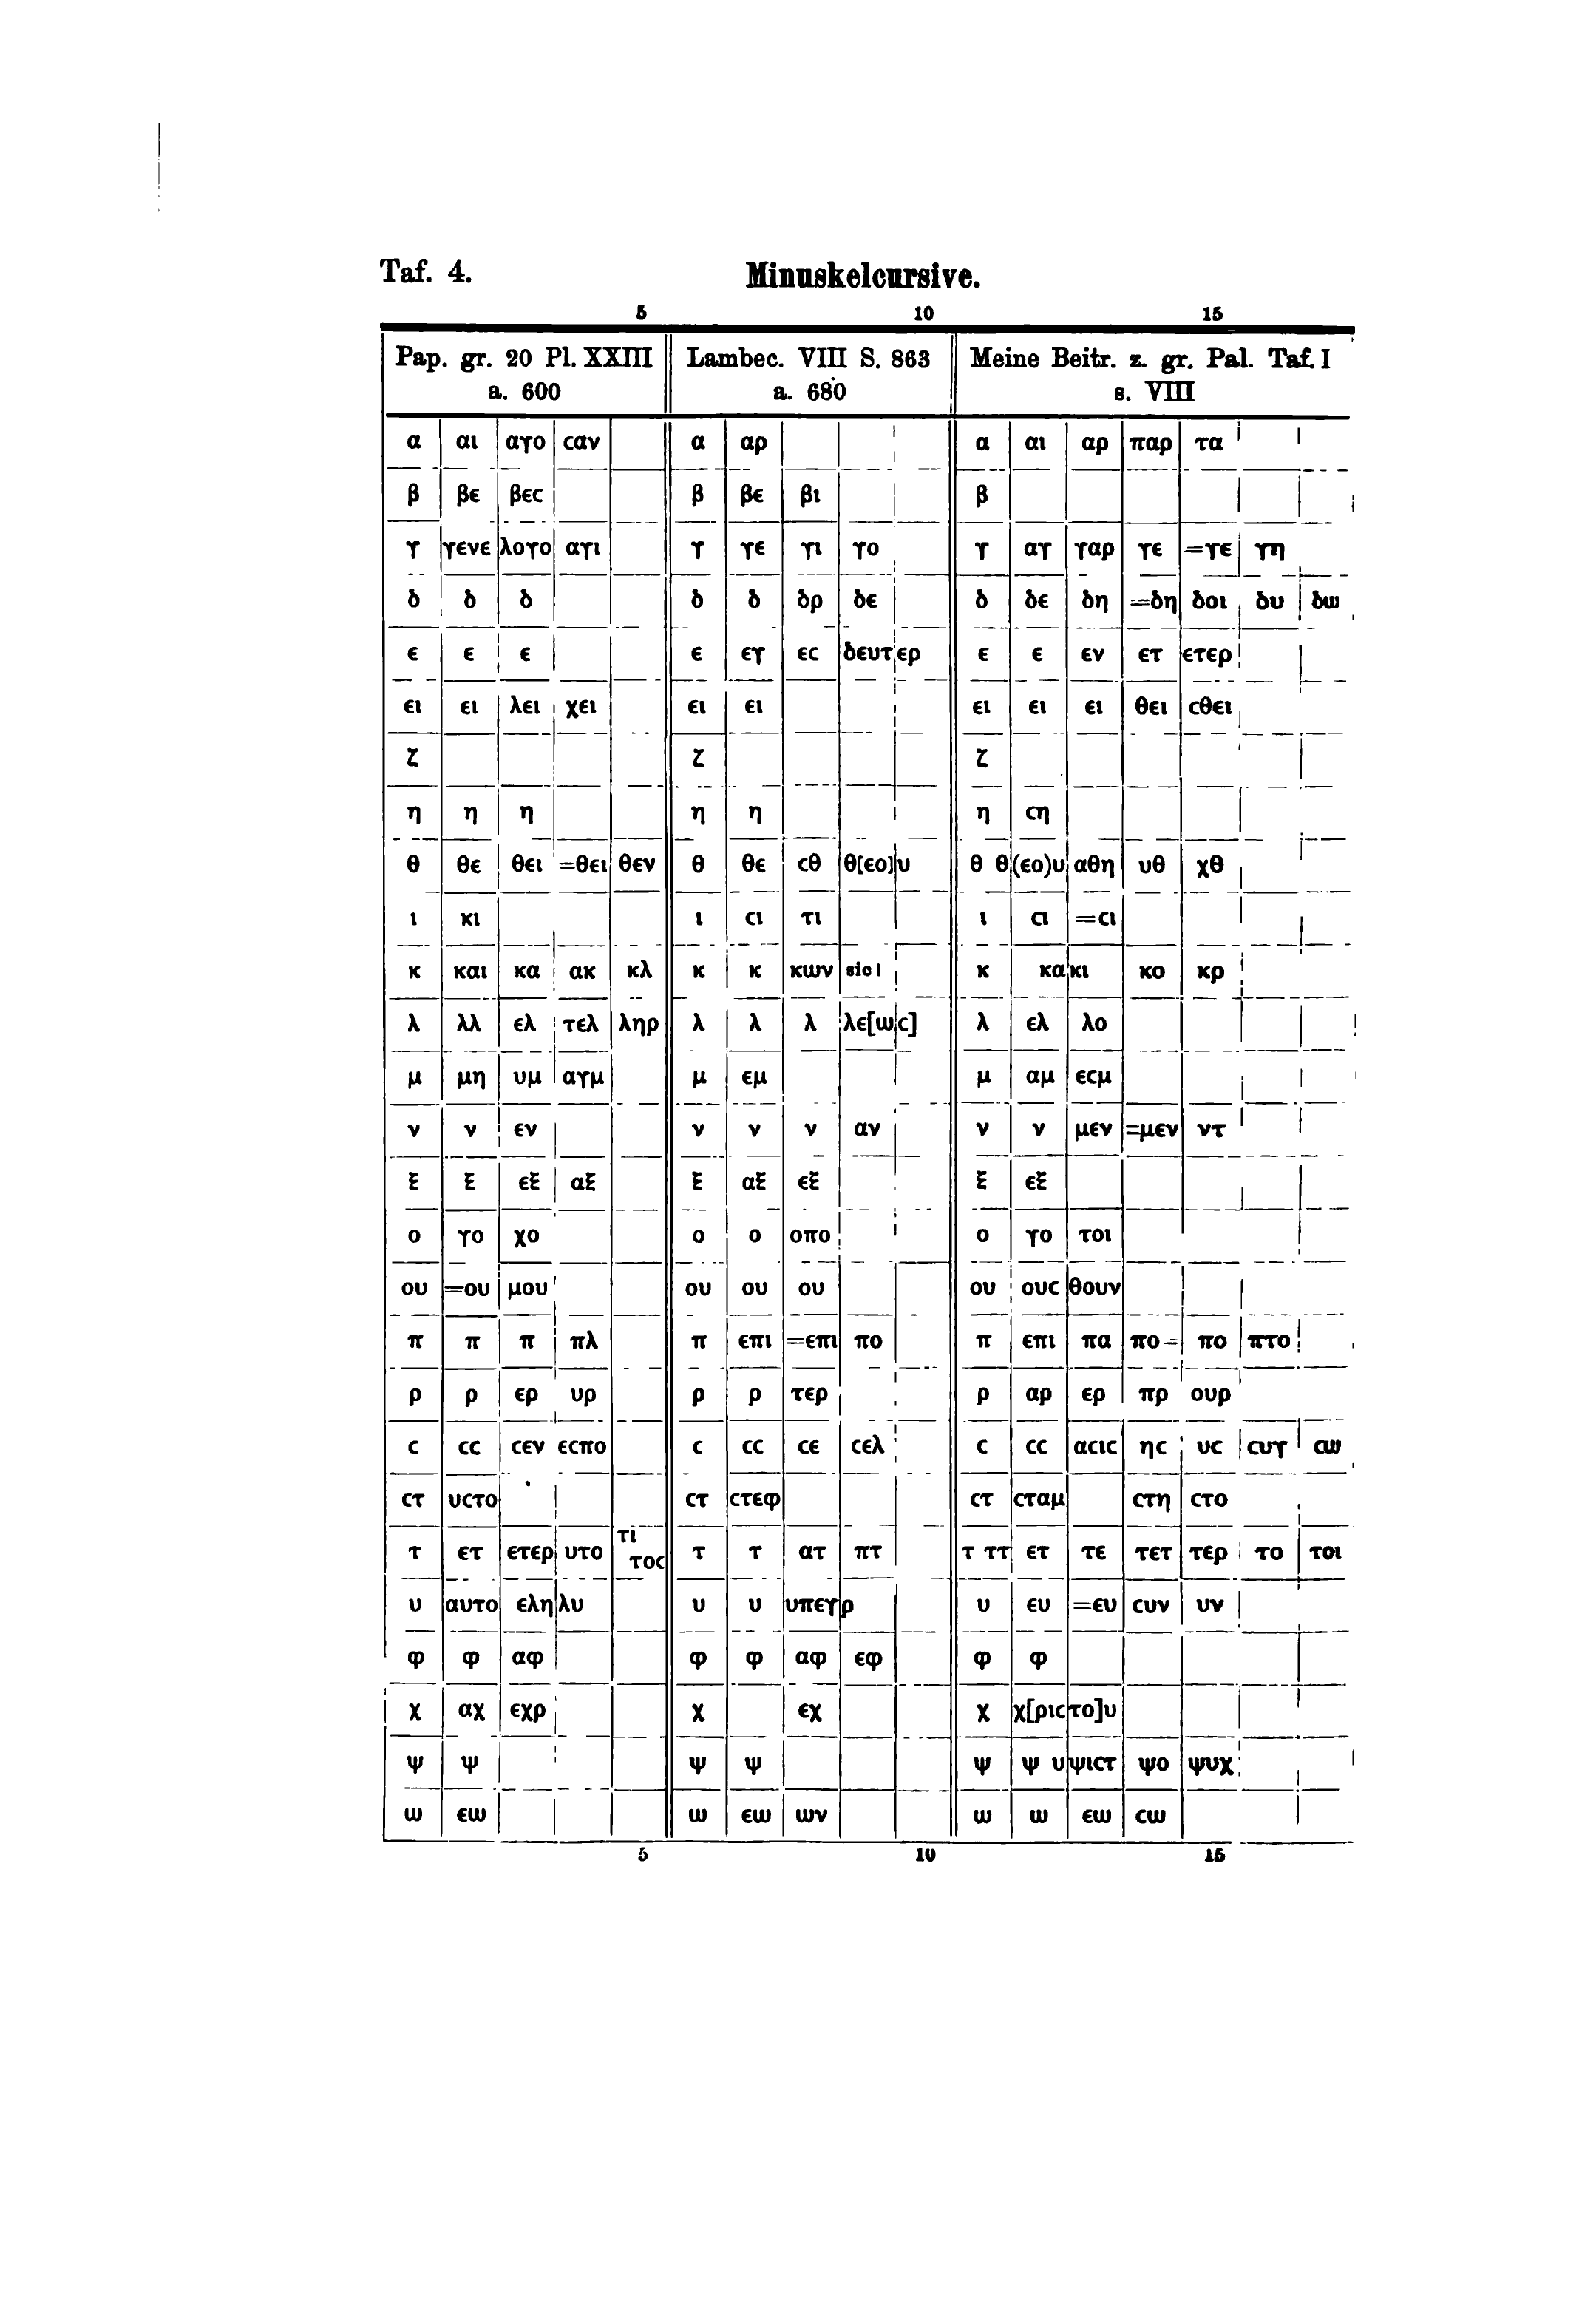 Taf. 4. Minuskelcursive.
5 10 15
Pap. gr. 20 Pl. XXIII Lambec. VIII S. 863 Meine Beitr. z. gr. Pal. Taf. I
a. 600 a. 680 s. VIII
α αι αγο cαν α αρ α αι αρ παρ τα
β βε βεc β βε βι β
γ γενε λογο αγι γ γε γι γο γ αγ γαρ γε =γε γη
δ δ δ δ δ δρ δε δ δε δη =δη δοι δυ δω
ε ε ε ε εγ εc δευτερ ε ε εν ετ ετερ
ει ει λει χει ει ει ει ει ει θει cθει
ζ ζ ζ
η η η η η η cη
θ θε θει =θει θεν θ θε cθ θ[εο]υ θ θ(εο)υ αθη υθ χθ
ι κι ι cι τι ι cι =cι
κ και κα ακ κλ κ κ κων sic! κ κακι κο κρ
λ λλ ελ τελ ληρ λ λ λ λε[ωc] λ ελ λο
μ μη υμ αγμ μ εμ μ αμ εcμ
ν ν εν ν ν ν αν ν ν μεν =μεν ντ
ξ ξ εξ αξ ξ αξ εξ ξ εξ
ο γο χο ο ο οπο ο γο τοι
ου =ου μου ου ου ου ου ουc θουν
π π π πλ π επι =επι πο π επι πα πο= πο πτο
ρ ρ ερ υρ ρ ρ τερ ρ αρ ερ πρ ουρ
c cc cεν εcπο c cc cε cελ c cc αcιc ηc υc cυγ cω
cτ υcτο cτ cτεφ cτ cταμ cτη cτο
τ ετ ετερ υτο τι τοc τ τ ατ πτ τ ττ ετ τε τετ τερ το τοι
υ αυτο εληλυ υ υ υπεγρ υ ευ =ευ cυν υν
φ φ αφ φ φ αφ εφ φ φ
χ αχ εχρ χ εχ χ χ[ριcτο]υ
ψ ψ ψ ψ ψ ψ υψιcτ ψο ψυχ
ω εω ω εω ων ω ω εω cω
5 10 15